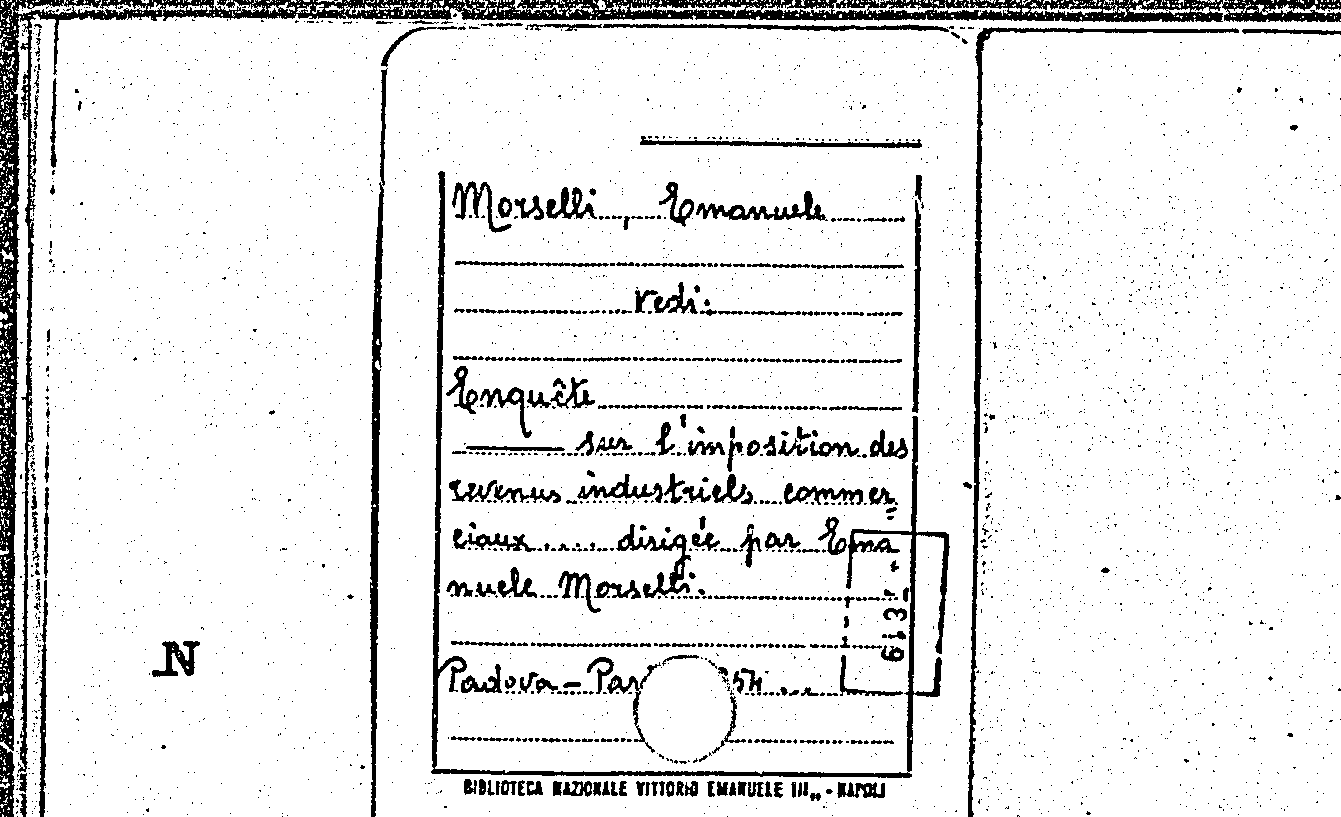 Morselli, Emanuele
vedi:
Enquête
—— sur l'imposition des
revenus industriels commer=
ciaux .... dirigée par Ema-
nuele Morselli.
Padova - Pari 54 ...
N
BIBLIOTECA NAZIONALE VITTORIO EMANUELE III„ - NAPOLI